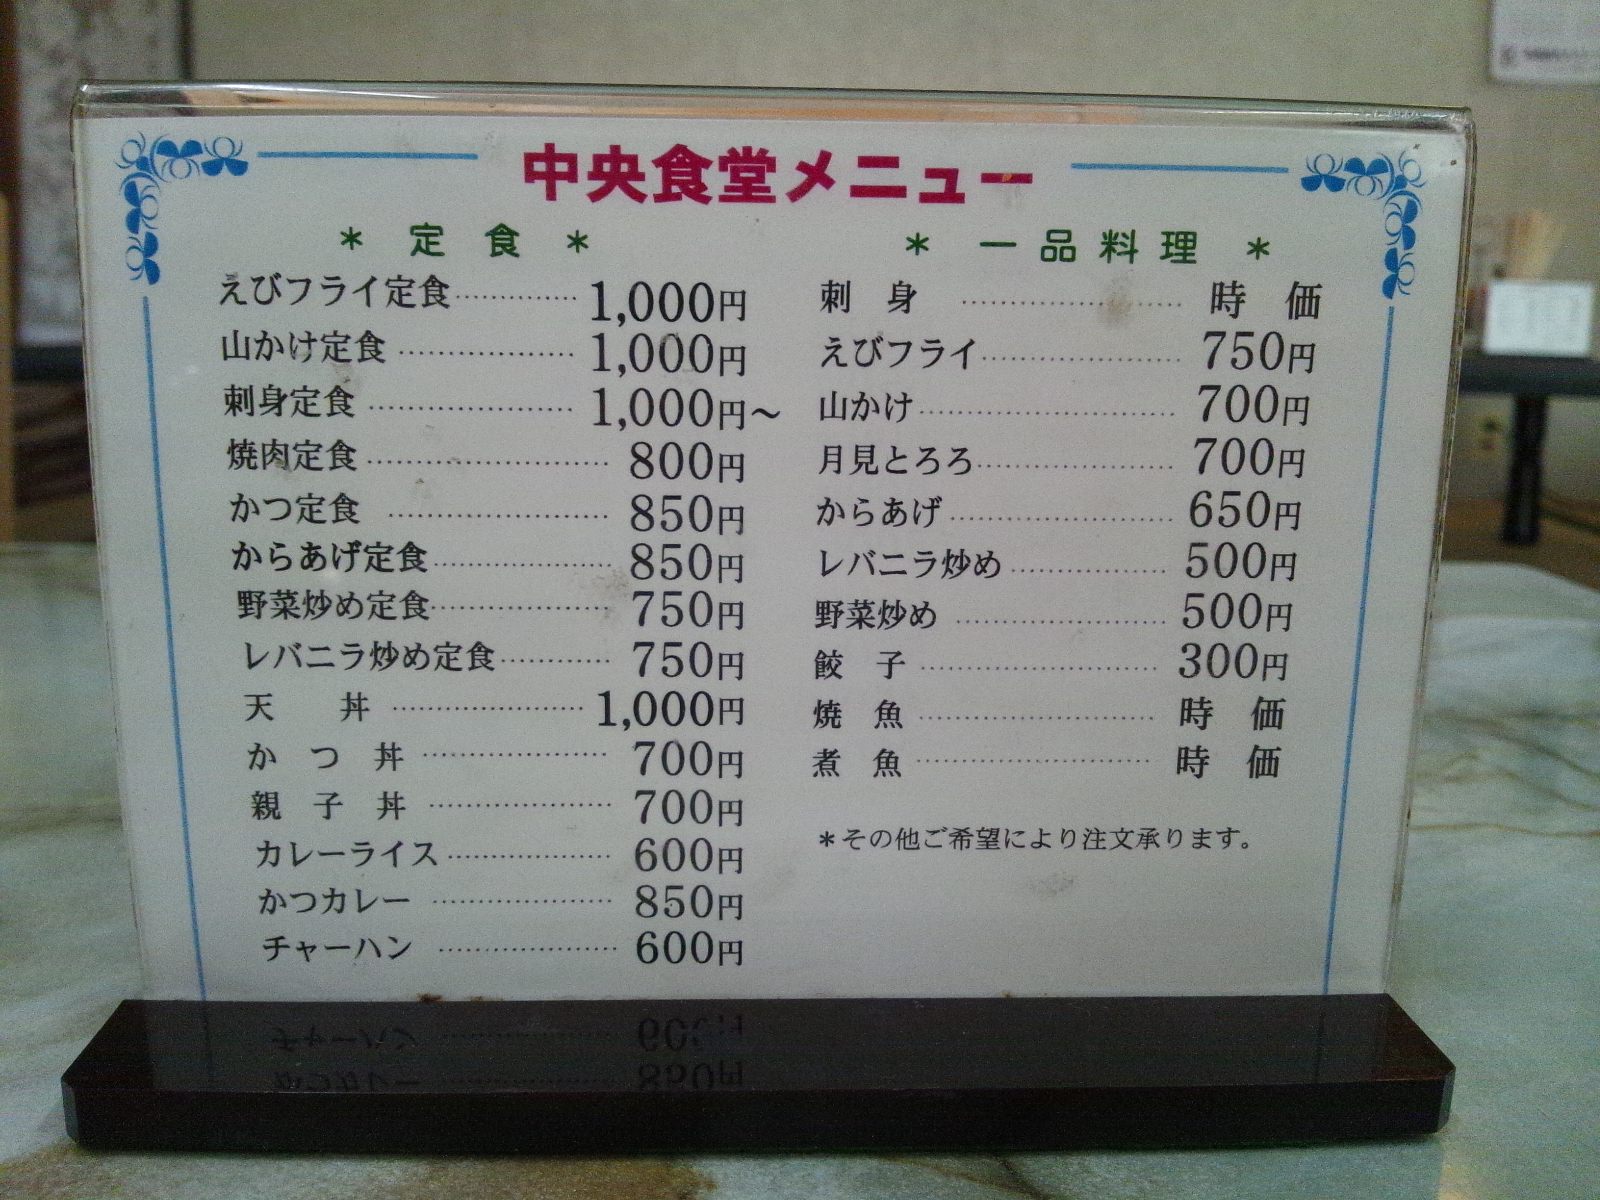 中央食堂メニュー
＊ 定 食 ＊
えびフライ定食 ............ 1,000円
山かけ定食 ............ 1,000円
刺身定食 ............ 1,000円～
焼肉定食 ............ 800円
かつ定食 ............ 850円
からあげ定食 ............ 850円
野菜炒め定食 ............ 750円
レバニラ炒め定食 ............ 750円
天 丼 ............ 1,000円
か つ 丼 ............ 700円
親 子 丼 ............ 700円
カレーライス ............ 600円
かつカレー ............ 850円
チャーハン ............ 600円
＊ 一 品 料 理 ＊
刺 身 ............ 時 価
えびフライ ............ 750円
山かけ ............ 700円
月見とろろ ............ 700円
からあげ ............ 650円
レバニラ炒め ............ 500円
野菜炒め ............ 500円
餃 子 ............ 300円
焼 魚 ............ 時 価
煮 魚 ............ 時 価
＊その他ご希望により注文承ります。